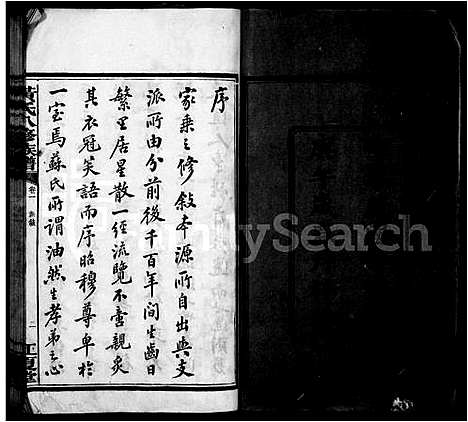 序
家乘之修敘本源所自出與支
派所由分前後千百年間生齒日
繁里居星散一經流覽不啻親炙
其衣冠笑語而序昭穆尊卑於
一室焉蘇氏所謂油然生孝弟之心
黃氏八修族譜
卷一
二
江夏堂
FamilySearch